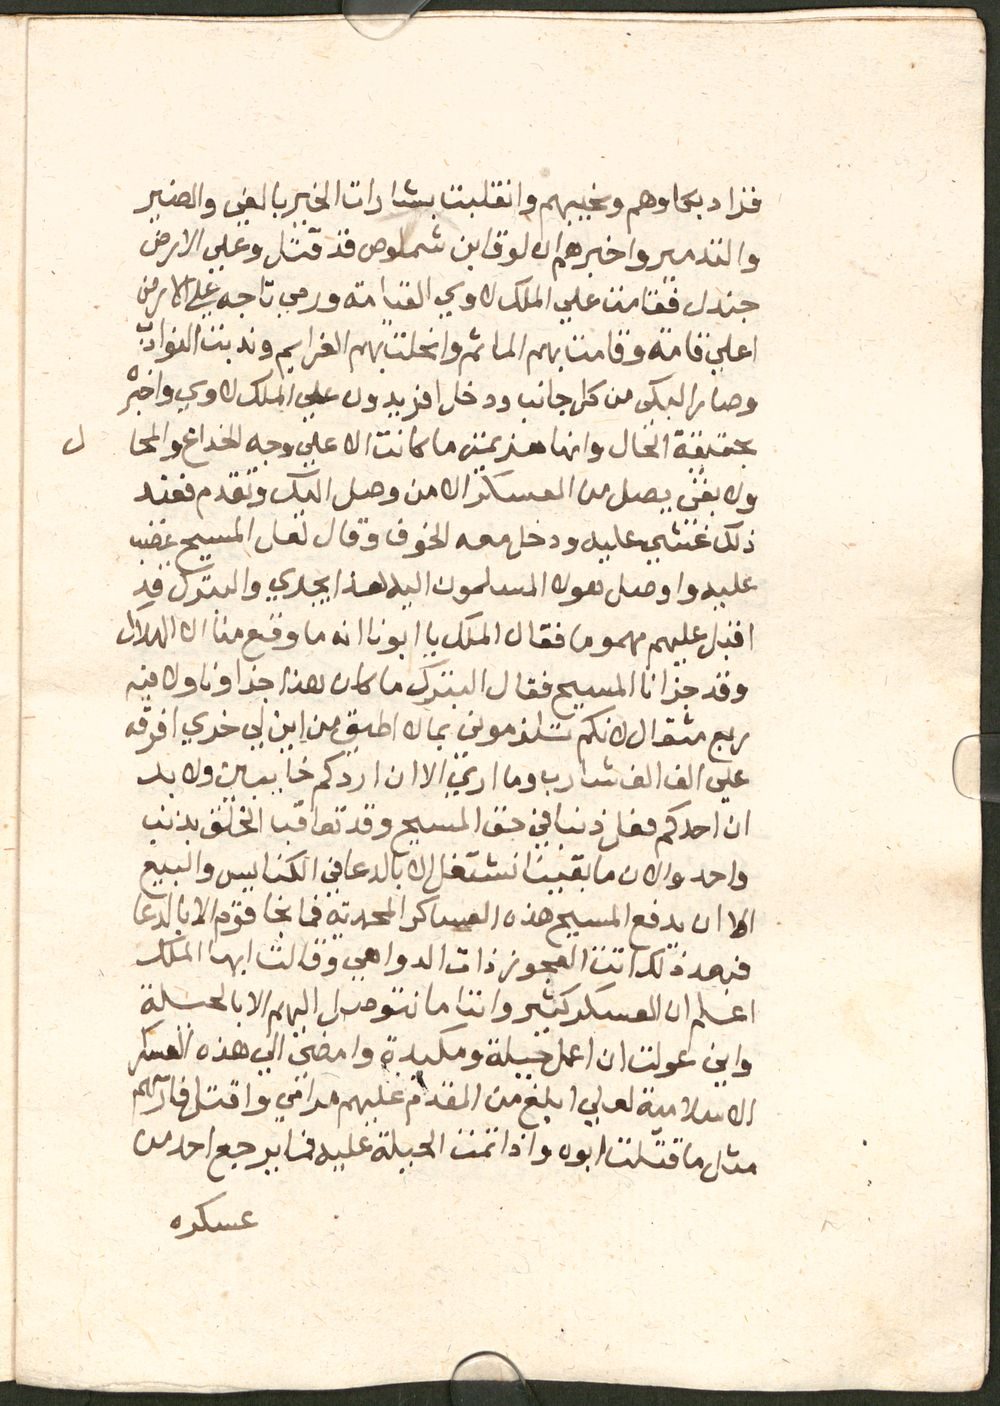 فزاد بكاوهم ونحيبهم وانقلبت بشارات الخير بالغبن والضير
والتدمير واخبرهم ان لوقا ابن شملوص قد قتل وعلي الارض
جندل فقامت علي الملك لاوي القيامه ورمي تاجه علي الارض من
اعلي قامه وقامت بهم الماتم وانحلت بهم العزايم وندبت النوادب
وصار البكي من كل جانب ودخل افريدون علي الملك لاوي واخبره
بحقيقة الحال وانها هذيمة ما كانت الا علي وجه الخداع والمحا
ل
ولا بقي يصل من العسكر الا من وصل اليك وتقدم فعند
ذلك غشي عليه ودخل معه الخوف وقال لعل المسيح غضب
عليه واوصل هولا المسلمون اليه لهذا يجدي والبترك قد
اقبل عليهم مهموما فقال الملك يا ابونا انه ما وقع منا الا الهلاك
وقد جزانا المسيح فقال البترك ما كان هذا جزاونا ولا فيه
ربع مثقال لانكم تلزموني بمالا اطيق من اين لي خري افرقه
علي الف الف شارب وما اري الا ان اردكم خايبين ولا بد
ان احدكم فعل ذنبا في حق المسيح وقد تعاقب الخلق بذنب
واحد والان ما بقينا نشتغل الا بالدعا في الكنايس والبيع
الا ان يدفع المسيح هذه العساكر المحمدية فما نجا قوم الا بالدعا
فبعد ذلك اتت العجوز ذات الدواهي وقالت ايها الملك
اعلم ان العسكر كثير واننا ما نتوصل اليهم الا بالحيلة
واني عولت ان اعمل حيلة ومكيدة وامضي الي هذه العسكر
الاسلامية لعلي ابلغ من المقدم عليهم مرامي واقتل فارسهم
مثل ما قتلت ابوه واذا تمت الحيلة عليه فما يرجع احد من
عسكره